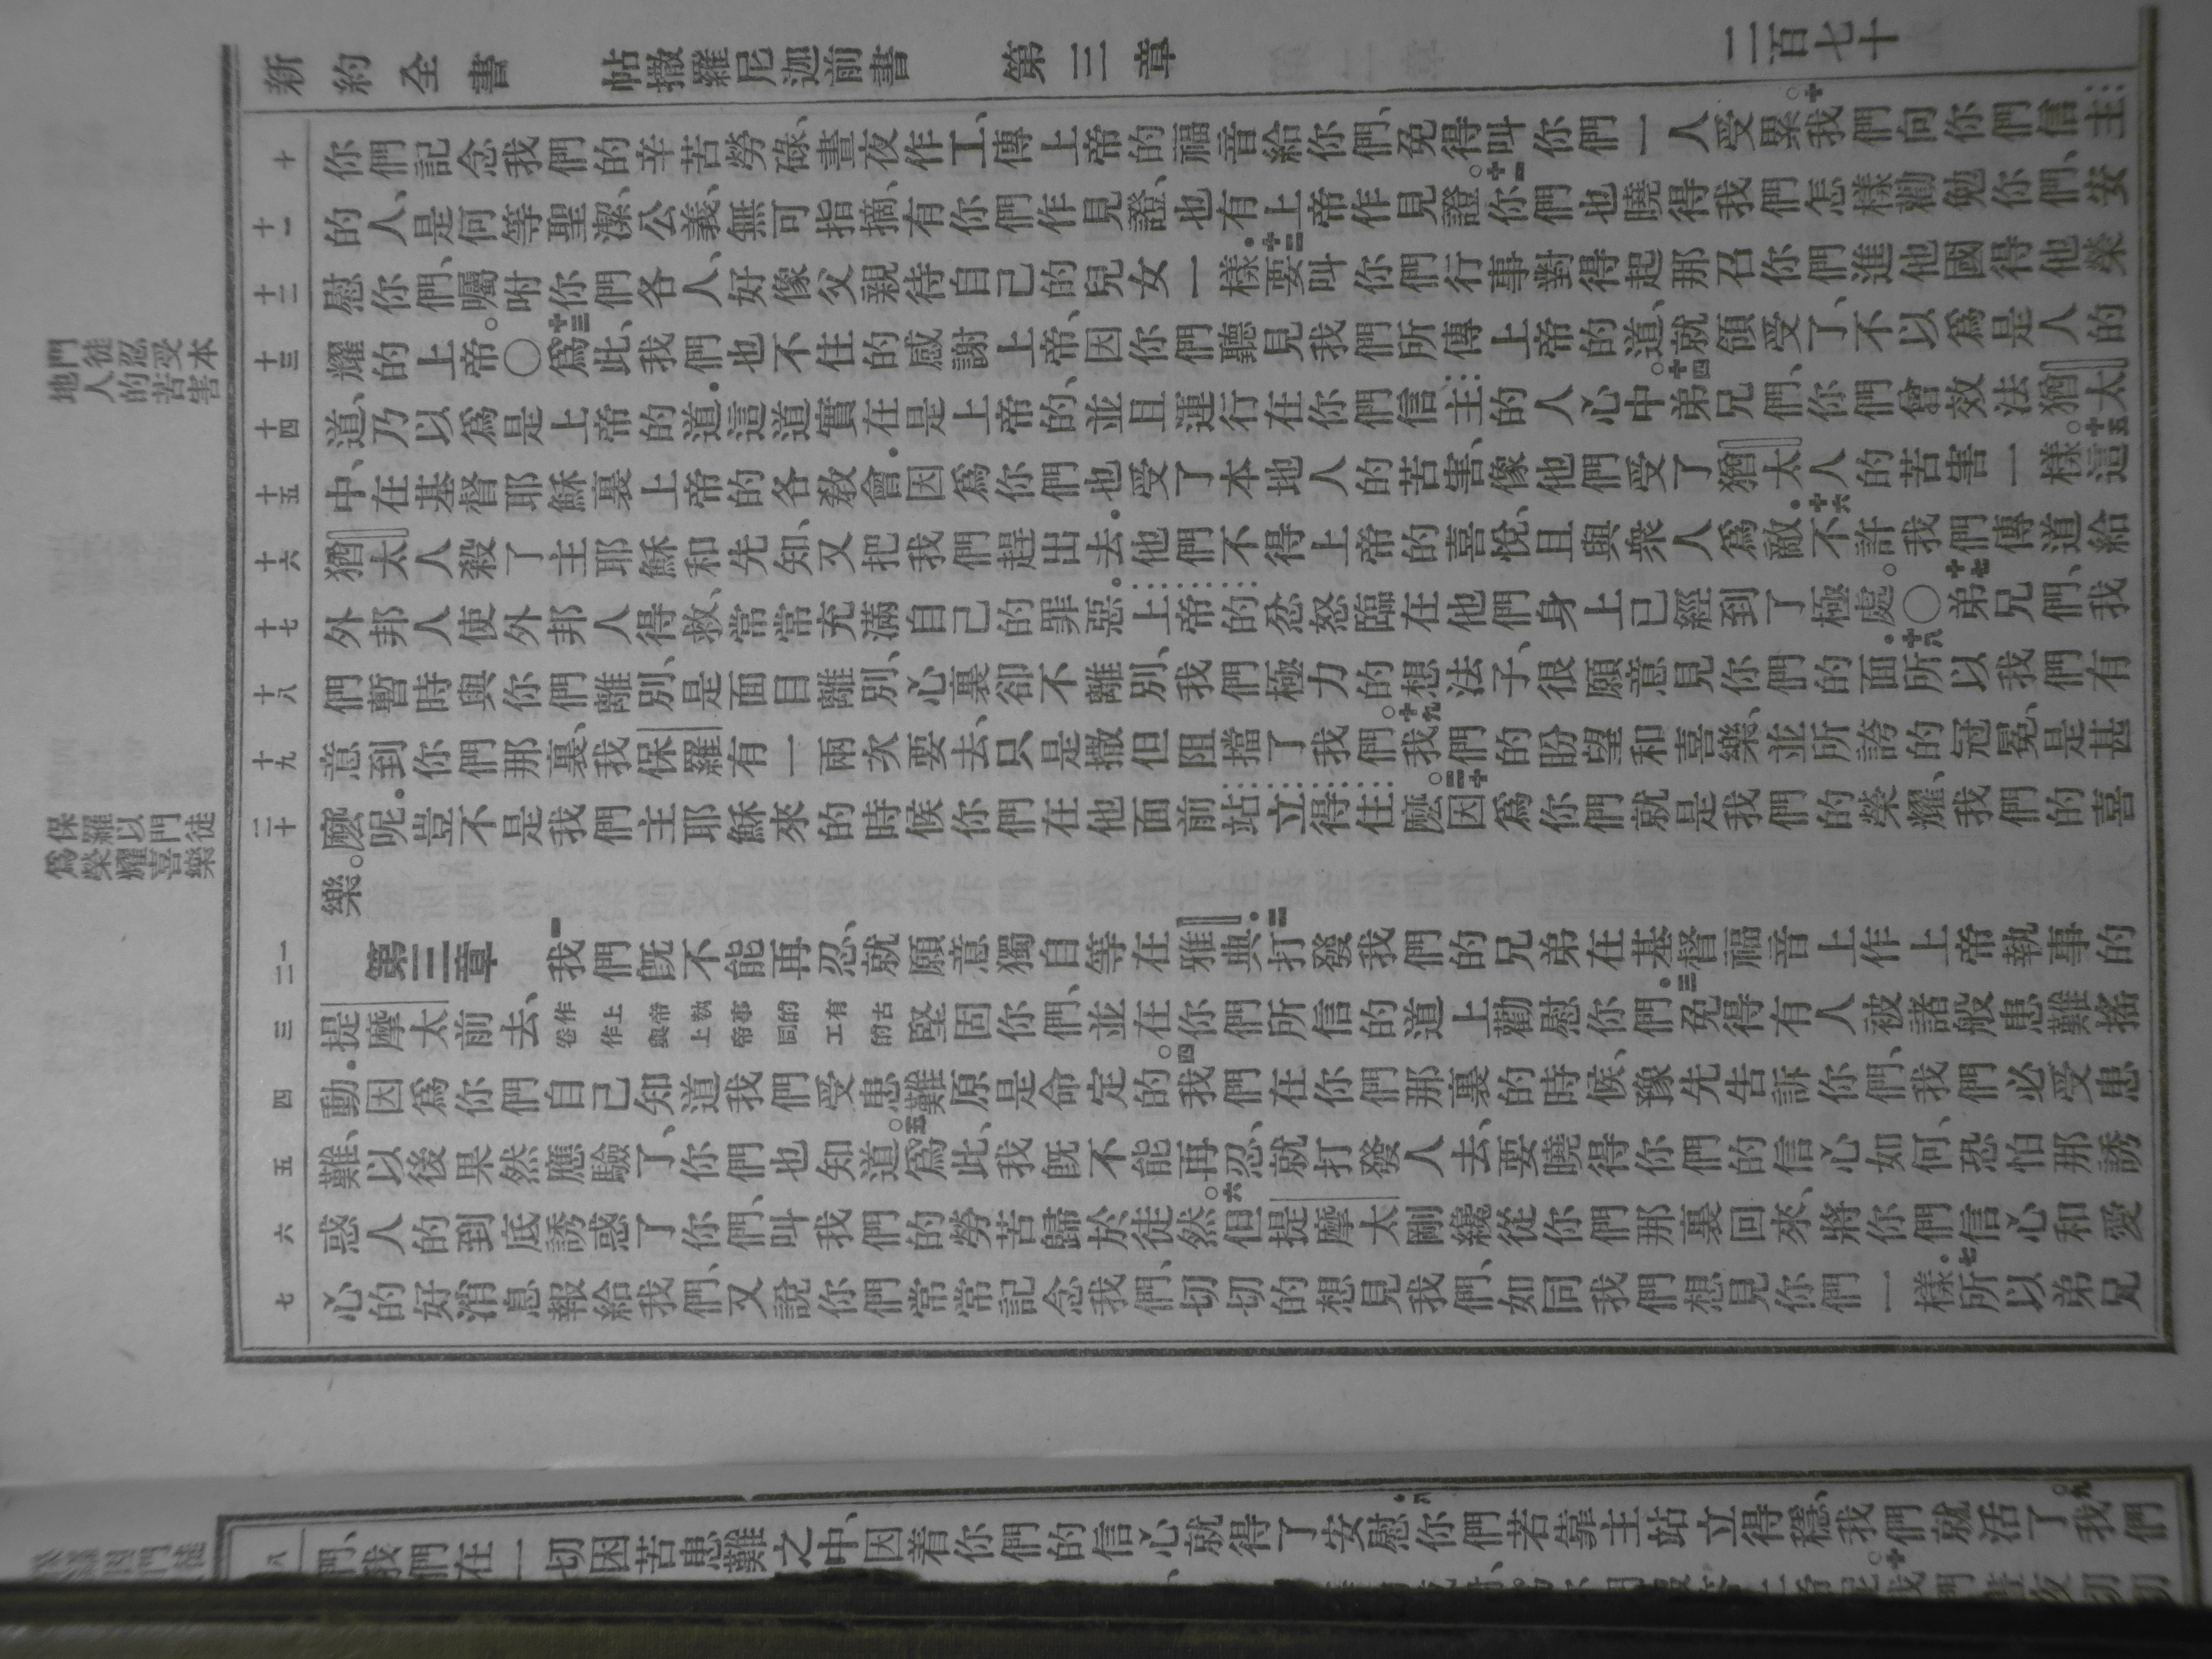 新約全書 帖撒羅尼迦前書 第三章 二百七十
門徒忍受本
地人的苦害
保羅以門徒
爲榮耀喜樂
十 你們記念我們的辛苦勞碌、晝夜作工、傳上帝的福音給你們、免得叫你們一人受累。十我們向你們信主
十一 的人、是何等聖潔、公義、無可指摘、有你們作見證、也有上帝作見證。十一你們也曉得我們怎樣勸勉你們、安
十二 慰你們、囑咐你們各人、好像父親待自己的兒女一樣.十二要叫你們行事對得起那召你們進他國得他榮
十三 耀的上帝。〇十三爲此、我們也不住的感謝上帝、因你們聽見我們所傳上帝的道、就領受了、不以爲是人的
十四 道、乃以爲是上帝的道.這道實在是上帝的、並且運行在你們信主的人心中。十四弟兄們、你們曾效法猶太
十五 中、在基督耶穌裏上帝的各教會.因爲你們也受了本地人的苦害、像他們受了猶太人的苦害一樣。十五這
十六 猶太人殺了主耶穌和先知、又把我們趕出去.他們不得上帝的喜悅、且與衆人爲敵.十六不許我們傳道給
十七 外邦人使外邦人得救、常常充滿自己的罪惡.上帝的忿怒臨在他們身上已經到了極處。〇十七弟兄們、我
十八 們暫時與你們離別、是面目離別、心裏卻不離別、我們極力的想法子、很願意見你們的面.十八所以我們有
十九 意到你們那裏、我保羅有一兩次要去、只是撒但阻擋了我們。十九我們的盼望和喜樂、並所誇的冠冕、是甚
二十 麼呢.豈不是我們主耶穌來的時候你們在他面前站立得住麼。二十因爲你們就是我們的榮耀、我們的喜
樂。
一二 第三章 一我們既不能再忍、就願意獨自等在雅典.二打發我們的兄弟在基督福音上作上帝執事的
三 提摩太前去、作上帝執事的有古卷作與上帝同工的堅固你們、並在你們所信的道上勸慰你們.三免得有人被諸般患難搖
四 動.因爲你們自己知道我們受患難原是命定的。四我們在你們那裏的時候、豫先告訴你們、我們必受患
五 難、以後果然應驗了、你們也知道。五爲此、我既不能再忍、就打發人去、要曉得你們的信心如何、恐怕那誘
六 惑人的到底誘惑了你們、叫我們的勞苦歸於徒然。六但提摩太剛纔從你們那裏回來、將你們信心和愛
七 心的好消息報給我們、又說你們常常記念我們、切切的想見我們、如同我們想見你們一樣.七所以弟兄
八 們、我們在一切困苦患難之中、因着你們的信心就得了安慰.八你們若靠主站立得穩、我們就活了。九我們